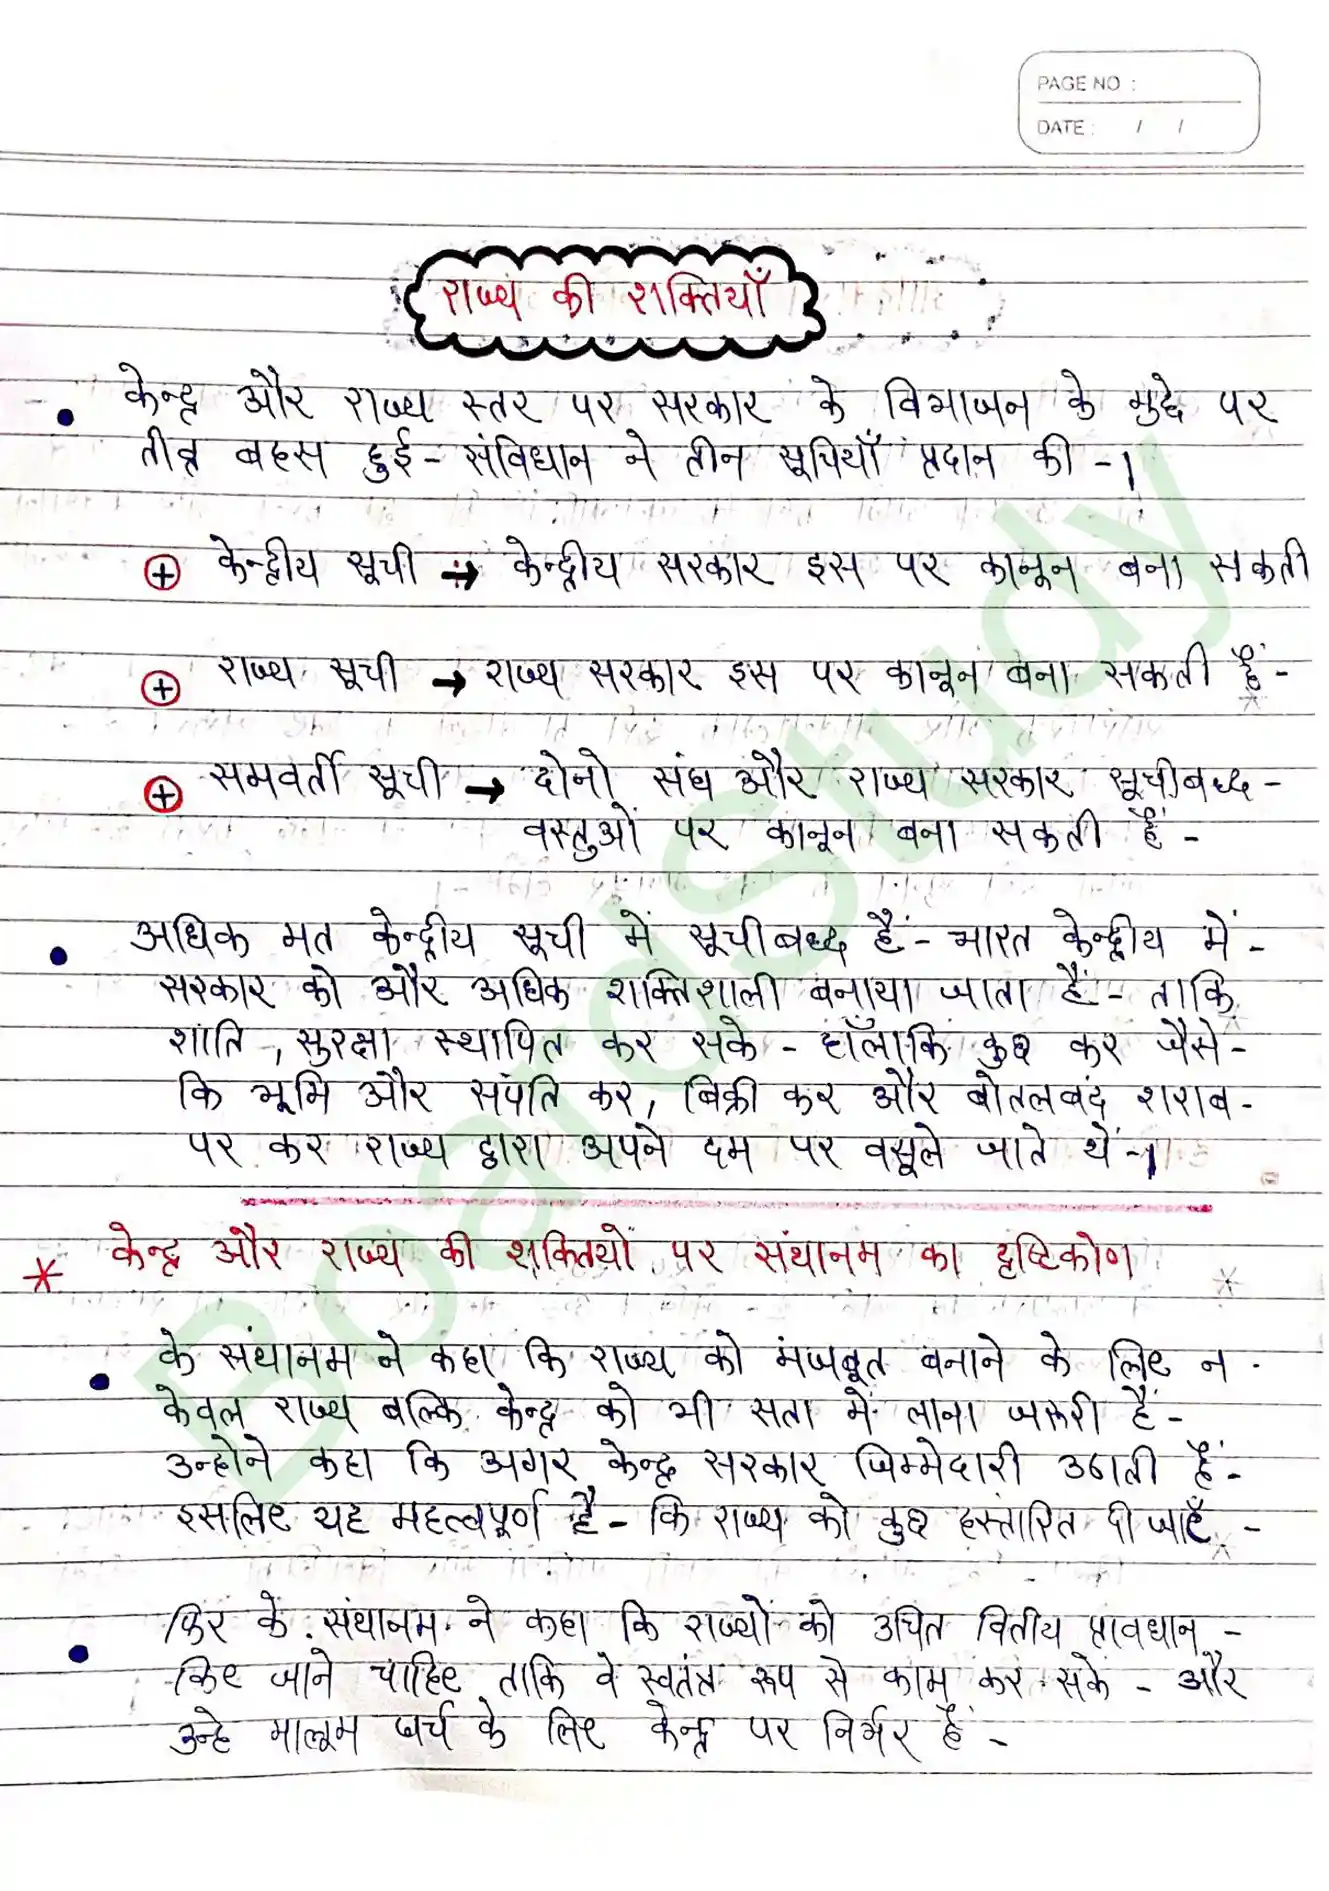 PAGE NO :
DATE : / /
राज्य की शक्तियाँ
केन्द्र और राज्य स्तर पर सरकार के विभाजन के मुद्दे पर
तीव्र बहस हुई - संविधान ने तीन सूचियाँ प्रदान की -।
केन्द्रीय सूची → केन्द्रीय सरकार इस पर कानून बना सकती
राज्य सूची → राज्य सरकार इस पर कानून बना सकती हैं -
समवर्ती सूची → दोनो संघ और राज्य सरकार सूचीबध्द -
वस्तुओं पर कानून बना सकती हैं -
अधिक मत केन्द्रीय सूची में सूचीबध्द हैं - भारत केन्द्रीय में -
सरकार को और अधिक शक्तिशाली बनाया जाता हैं - ताकि
शांति , सुरक्षा स्थापित कर सके - हाँलाकि कुछ कर जैसे -
कि भूमि और संपति कर, बिक्री कर और बोतलबंद शराब -
पर कर राज्य द्वारा अपने दम पर वसूले जाते थें -।
* केन्द्र और राज्य की शक्तियों पर संथानम का दृष्टिकोण
के संथानम ने कहा कि राज्य को मजबूत बनाने के लिए न
केवल राज्य बल्कि केन्द्र को भी सता में लाना जरूरी हैं -
उन्होने कहा कि अगर केन्द्र सरकार जिम्मेदारी उठाती हैं -
इसलिए यह महत्वपूर्ण है - कि राज्य को कुछ हस्तांरित दी जाएँ -
फिर के संथानम ने कहा कि राज्यों को उचित वितीय प्रावधान -
किए जाने चाहिए ताकि वे स्वतंत्र रूप से काम कर सके - और
उन्हे मालूम खर्च के लिए केन्द्र पर निर्भर हैं -
BoardStudy